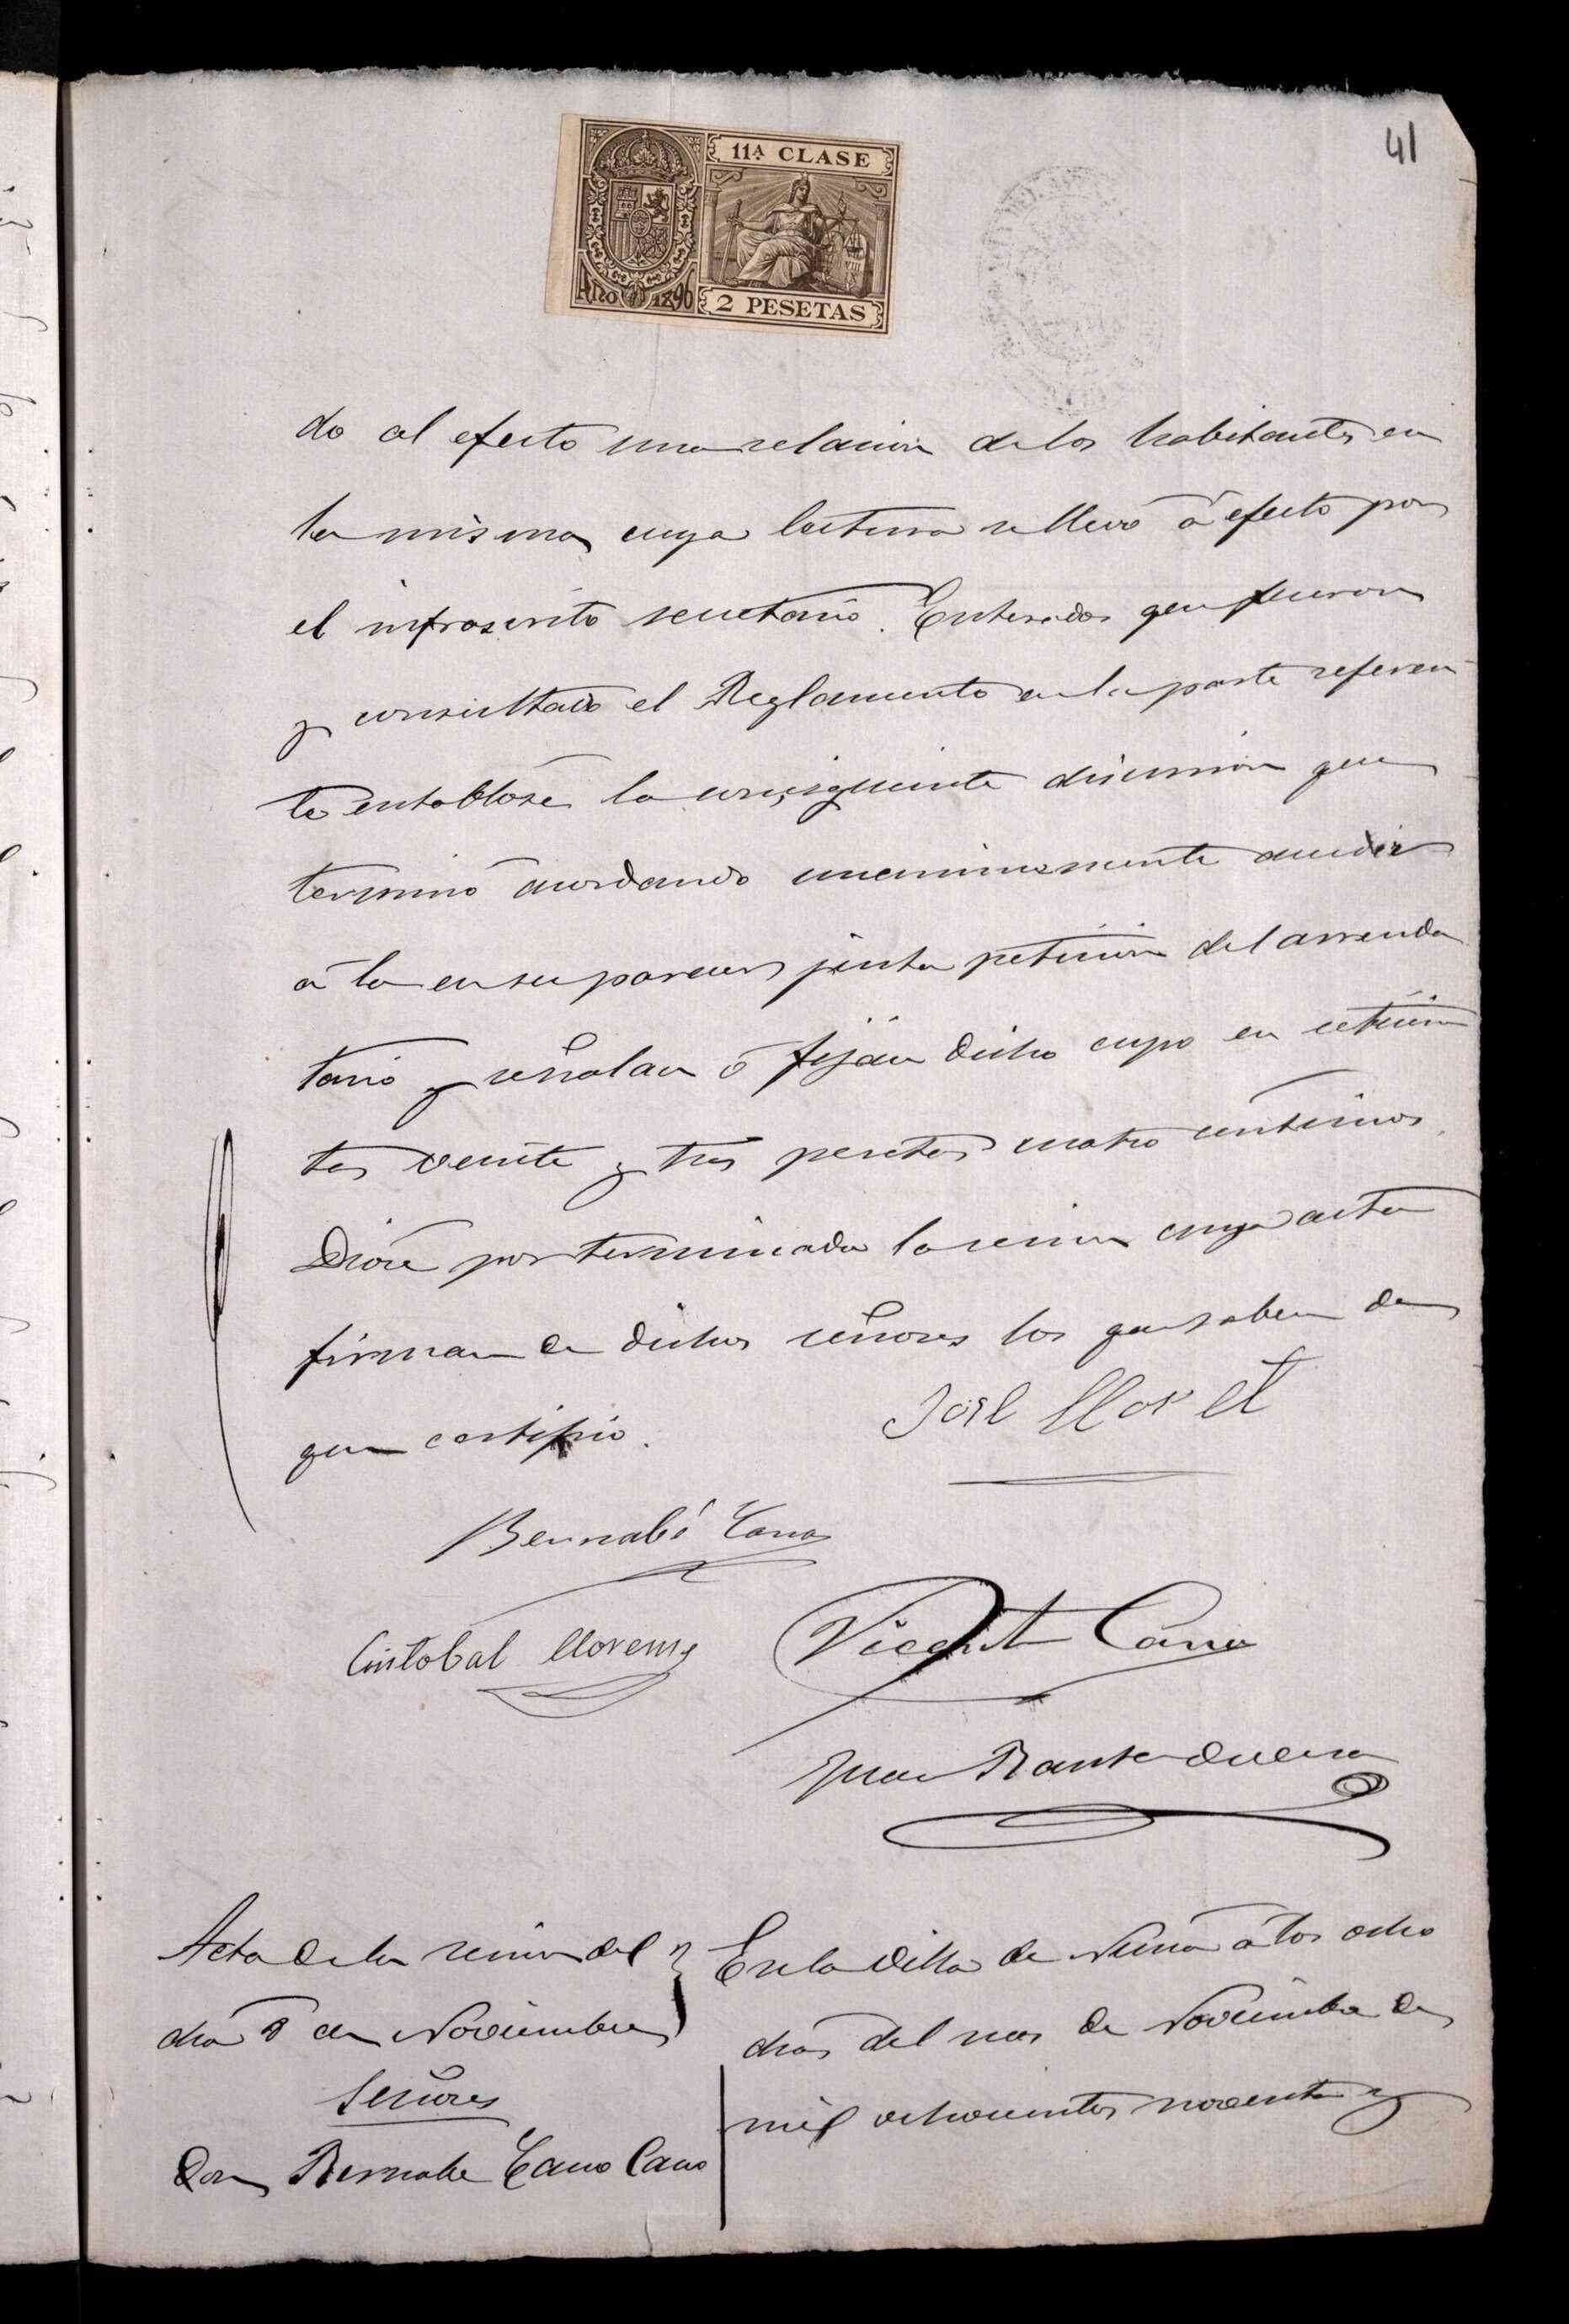 41
11ᴬ CLASE
Año 1896
2 PESETAS
do al efecto una relacion de los habitantes en
la misma, cuya lectura se llevó á efecto por
el infrascrito secretario. Enterados que fueron
y consultado el Reglamento en la parte referen
te entablose la consiguiente discusion que
terminó acordando unanimamente acceder
á la en su parecer justa peticion del arrenda
tario y señalan ó fijan dicho cupo en setecien
tas veinte y tres pesetas cuatro centimos.
Diose por terminada la sesion cuya acta
firman de dichos señores los que saben de
que certifico.
José Llorét
Bernabé Cano
Cristobal Llorens
Vicente Cano
Juan Bautista
Acta de la sesion del
dia 8 de Noviembre
Señores
Don Bernabe Cano Cano
En la Villa de á los ocho
dias del mes de Noviembre de
mil ochocientos noventa y